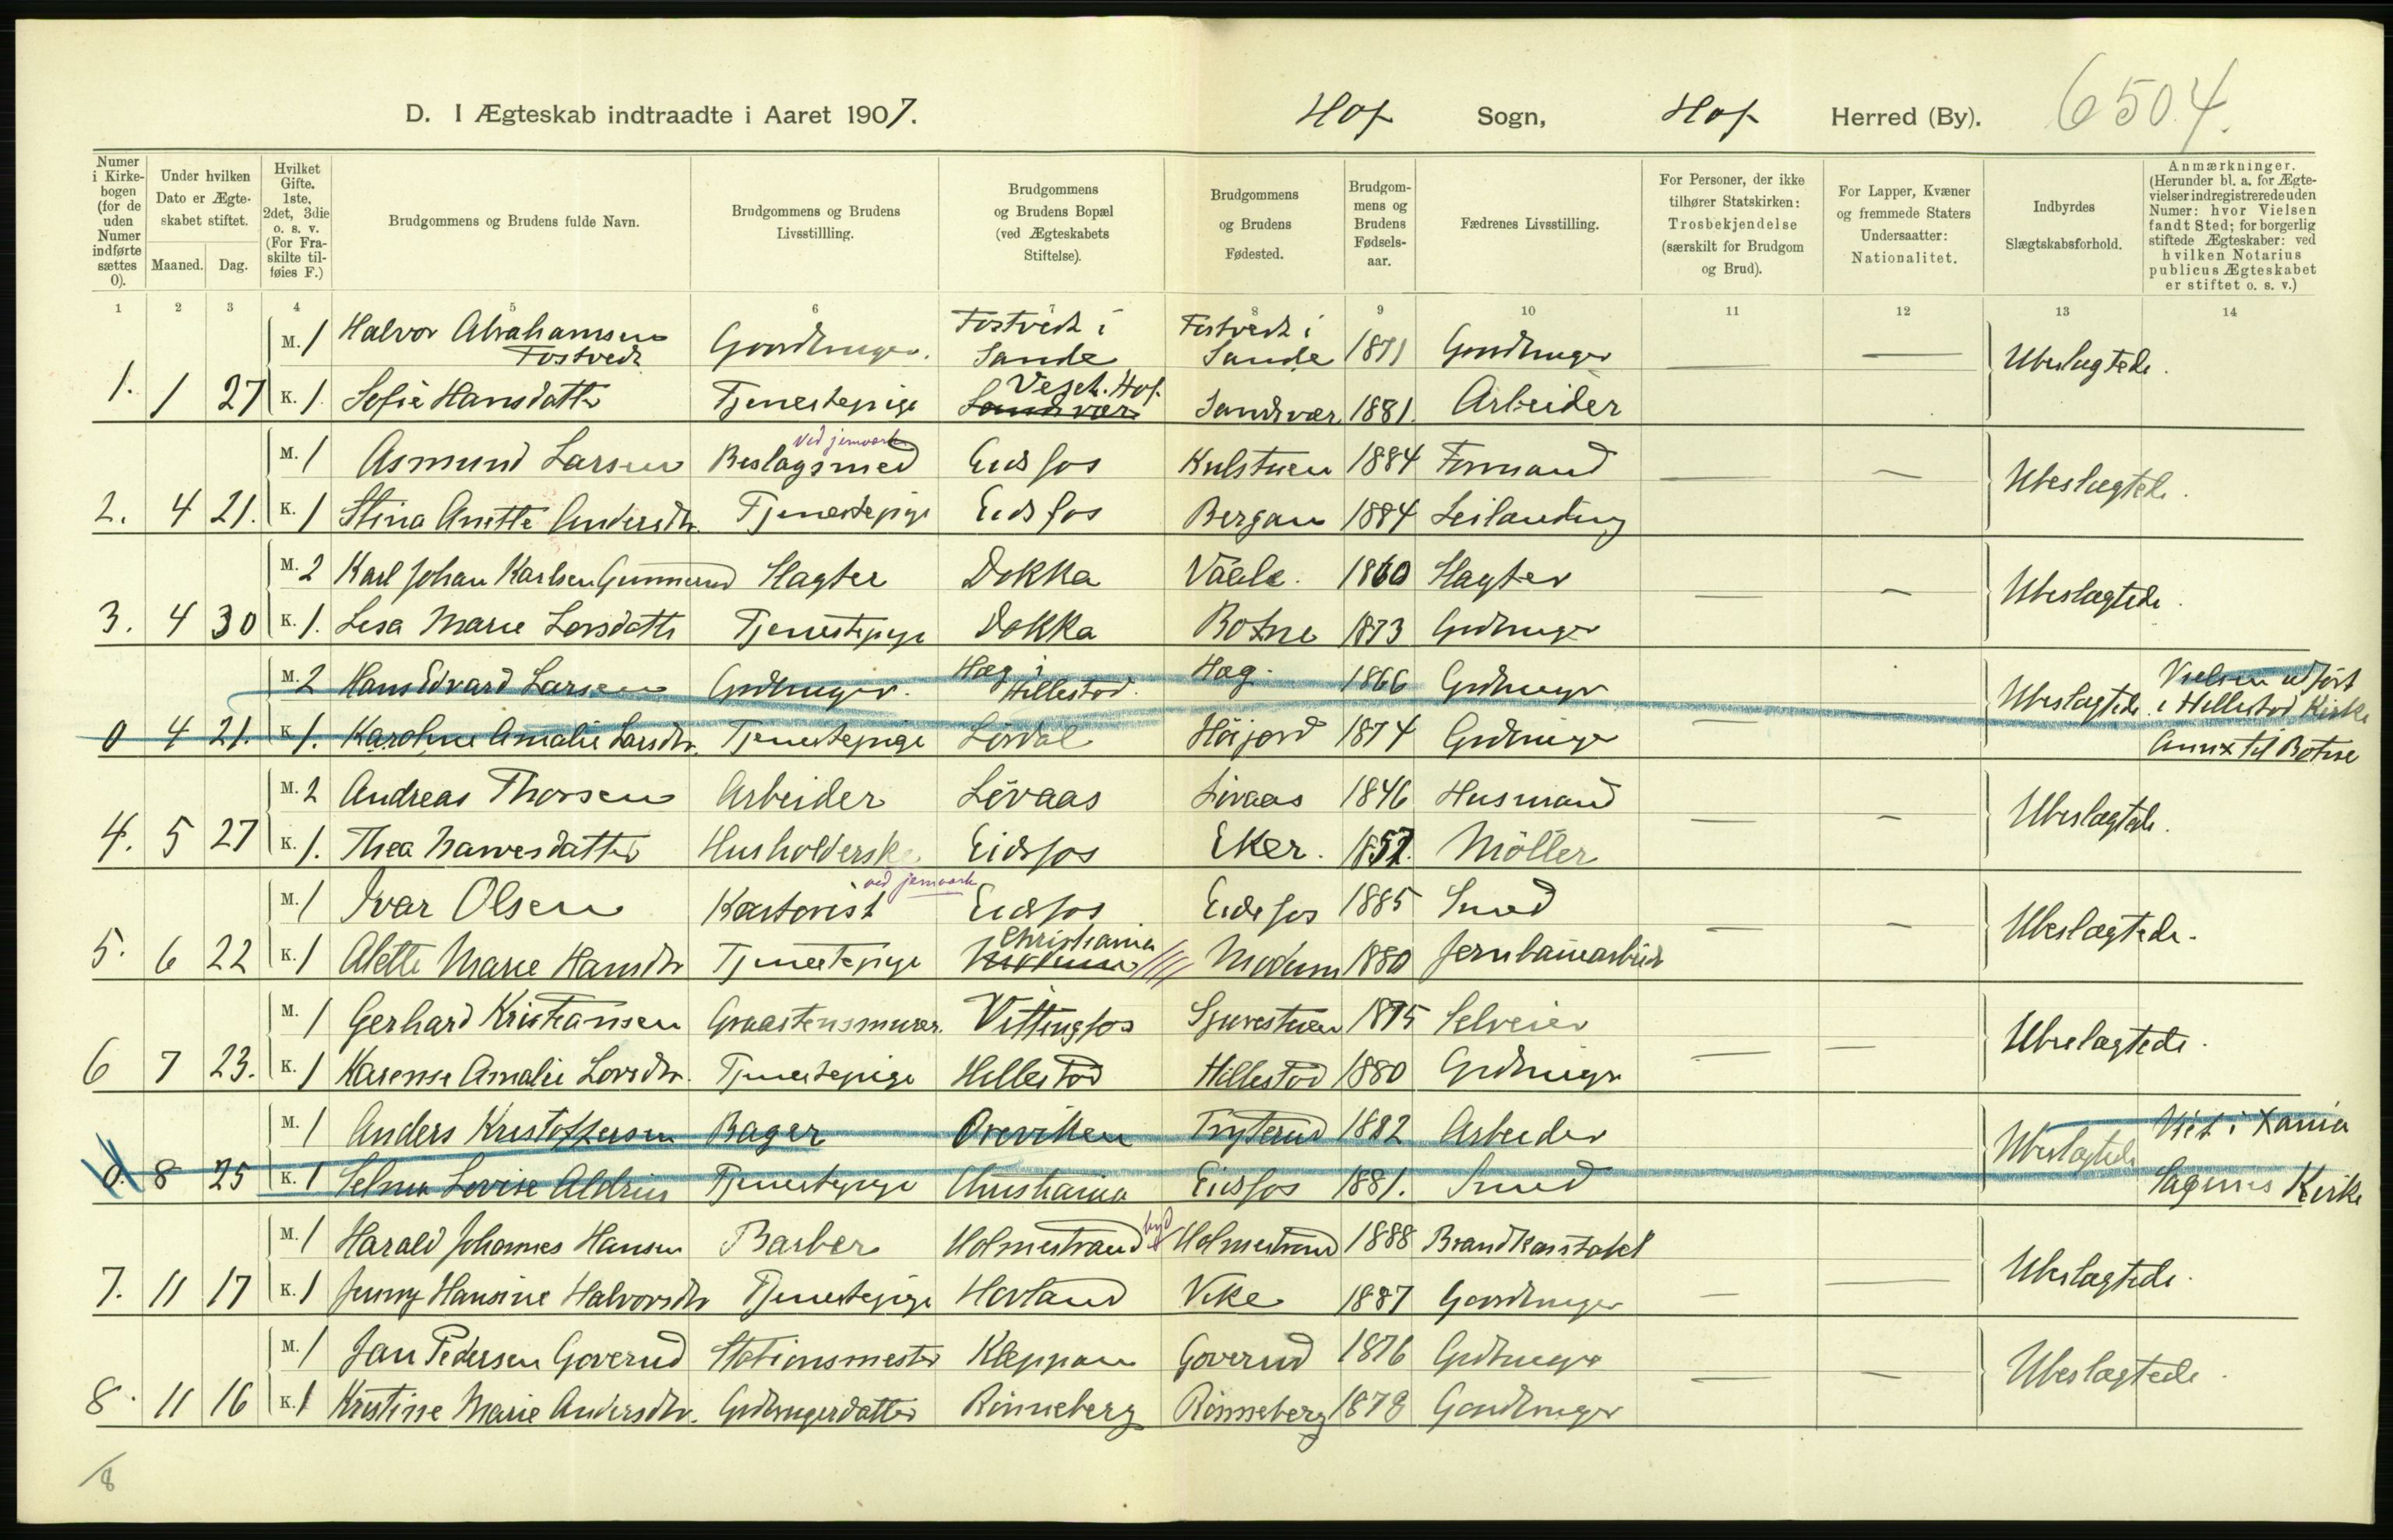 D. I Ægteskab indtraadte i Aaret 1907. Hof Sogn, Hof Herred (By). 6504.
Numer i Kirkebogen (for de uden Numer indførte sættes 0).
Under hvilken Dato er Ægteskabet stiftet.
Maaned. Dag.
Hvilket Gifte. 1ste, 2det, 3die o. s. v. (For Fraskilte tilføies F.)
Brudgommens og Brudens fulde Navn.
Brudgommens og Brudens Livsstillling.
Brudgommens og Brudens Bopæl (ved Ægteskabets Stiftelse).
Brudgommens og Brudens Fødested.
Brudgommens og Brudens Fødselsaar.
Fædrenes Livsstilling.
For Personer, der ikke tilhører Statskirken: Trosbekjendelse (særskilt for Brudgom og Brud).
For Lapper, Kvæner og fremmede Staters Undersaatter: Nationalitet.
Indbyrdes Slægtskabsforhold.
Anmærkninger. (Herunder bl. a. for Ægtevielser indregistrerede uden Numer: hvor Vielsen fandt Sted; for borgerlig stiftede Ægteskaber: ved hvilken Notarius publicus Ægteskabet er stiftet o. s. v.)
1 2 3 4 5 6 7 8 9 10 11 12 13 14
M. 1 Halvor Abrahamsen Tostvedt Gaardbruger. Tostvedt i Sande Tostvedt i Sande 1871 Gaardbruger — — Ubeslægtede.
1. 1 27 K. 1. Sofie Hansdatter Tjenestepige Sandsvær Veseth. Hof. Sandsvær 1881. Arbeider
M. 1 Asmund Larsen Beslagsmed ved jernværk Eidsfos Kulstuen 1884 Formand — — Ubeslægtede.
2. 4 21. K. 1 Stina Anette Andersdtr. Tjenestepige Eidsfos Bergan 1884 Leilænding
M. 2 Karl Johan Karlsen Gunnerud Slagter Dokka Vaale. 1860 Slagter — — Ubeslægtede.
3. 4 30 K. 1. Lesa Marie Larsdatter Tjenestepige Dokka Botne 1873 Grdbruger
M. 2 Hans Edvard Larsen Grdbruger. Hæg i Hillestad. Hæg. 1866 Grdbruger — Ubeslægtede. Vielsen udført i Hillestad Kirke
0 4 21. K. 1. Karoline Amalie Larsdtr. Tjenestepige Lørdal Høijord 1874 Grdbruger Annex til Botne
M. 2 Andreas Thorsen Arbeider Løvaas Løvaas 1846 Husmand — — Ubeslægtede.
4. 5 27 K. 1. Thea Hansdatter Husholderske Eidsfos Eker. 1857. Møller
M. 1 Ivar Olsen ved jernværk Eidsfos Eidsfos 1885 Smed — — Ubeslægtede.
5. 6 22 K. 1 Alette Marie Hansdtr Tjenestepige Modum Christiania Modum 1880 Jernbanearbeid
M. 1 Gerhard Kristiansen Graastensmurer. Vittingfos 1875 Selveier — — Ubeslægtede.
6 7 23. K. 1 Karense Amalie Larsdtr. Tjenestepige Hillestad Hillestad 1880 Grdbruger
M. 1 Anders Kristoffersen Bager Tryterud 1882 Arbeider Ubeslægtede Viet i Xania
0. 8 25 K. 1 Selma Lovise Aldrin Tjenestepige Christiania Eidsfos 1881. Smed Sagenes Kirke
M. 1 Harald Johannes Hansen Barber Holmestrand by Holmestrand 1888 Brandkonstabel — — Ubeslægtede.
7. 11 17 K. 1 Jenny Hansine Halvorsdtr Tjenestepige Hovland Vike 1887 Gaardbruger
M. 1 Jan Pedersen Goverud Stationsmester Kleppan Goverud 1876 Grdbruger — — Ubeslægtede.
8. 11 16 K. 1 Kristine Marie Andersdtr. Grdbrugerdatter Rønneberg Rønneberg 1878 Gaardbruger
/8